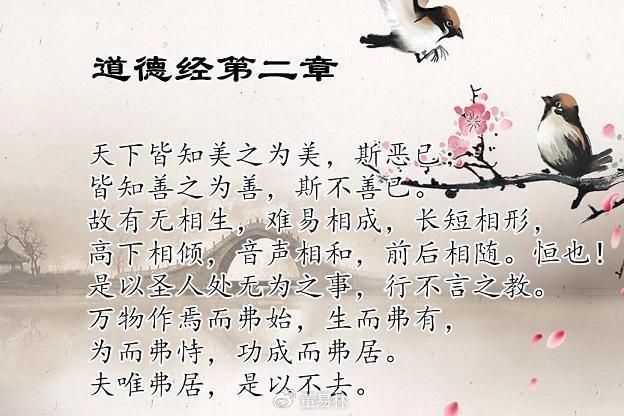 道德经第二章
天下皆知美之为美，斯恶已；
皆知善之为善，斯不善已。
故有无相生，难易相成，长短相形，
高下相倾，音声相和，前后相随。恒也！
是以圣人处无为之事，行不言之教。
万物作焉而弗始，生而弗有，
为而弗恃，功成而弗居。
夫唯弗居，是以不去。